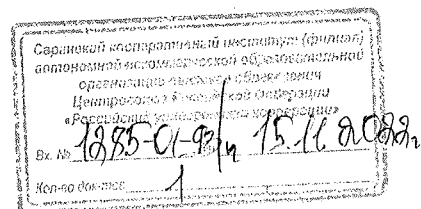 Саранский кооперативный институт (филиал)
автономной некоммерческой образовательной
организации высшего образования
Центросоюза Российской Федерации
«Российский университет кооперации»
Вх. № 1285-01-93/ц 15.11.2022г
Кол-во док-тов 1